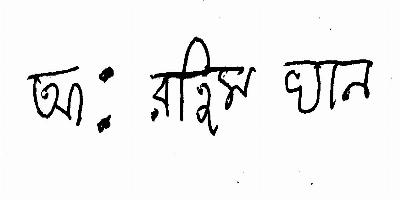 আঃ রহিম খান